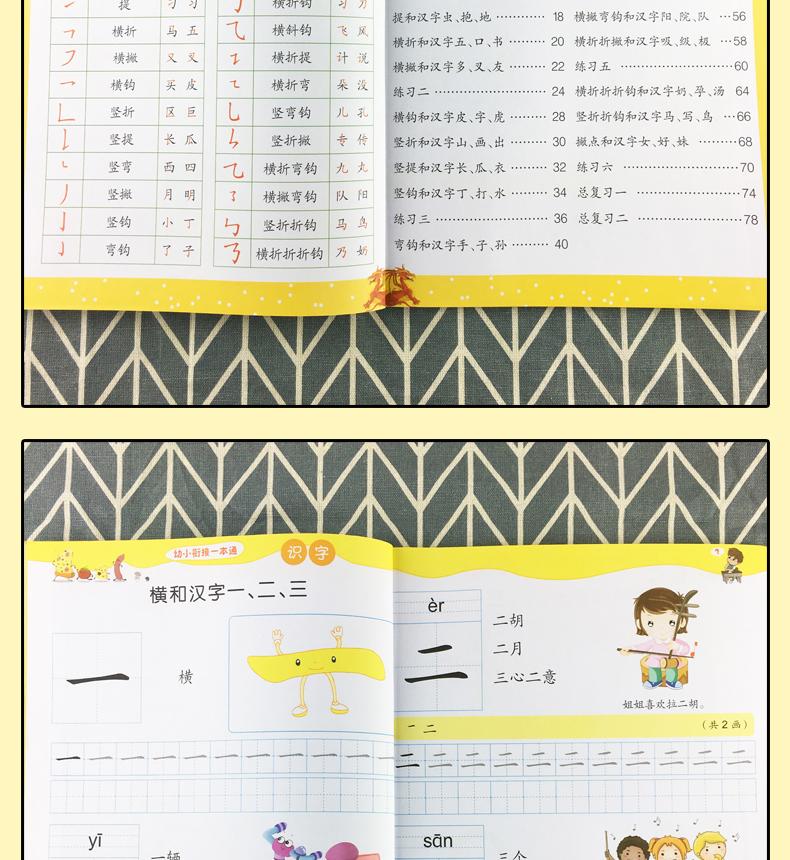 提 习 习
横折 马 五
横撇 又 叉
横钩 买 皮
竖折 区 巨
竖提 长 瓜
竖弯 西 四
竖撇 月 明
竖钩 小 丁
弯钩 了 子
横折钩 习 力
横斜钩 飞 风
横折提 计 说
横折弯 朵 没
竖弯钩 儿 孔
竖折撇 专 传
横折弯钩 九 丸
横撇弯钩 队 阳
竖折折钩 马 鸟
横折折折钩 乃 奶
提和汉字虫、抱、地 ………… 18
横折和汉字五、口、书 ……… 20
横撇和汉字多、又、友 ……… 22
练习二 ……………………… 24
横钩和汉字皮、字、虎 ……… 28
竖折和汉字山、画、出 ……… 30
竖提和汉字长、瓜、衣 ……… 32
竖钩和汉字丁、打、水 ……… 34
练习三 ……………………… 36
弯钩和汉字手、子、孙 ……… 40
横撇弯钩和汉字阳、院、队 …56
横折折撇和汉字吸、级、极 …58
练习五 ……………………60
横折折折钩和汉字奶、孕、汤 64
竖折折钩和汉字马、写、鸟 …66
撇点和汉字女、好、妹 ………68
练习六 ……………………70
总复习一 …………………74
总复习二 …………………78
幼小衔接一本通
识字
横和汉字一、二、三
一 横
一 一 一 一 一 一 一 一 一 一 一 一
yī
一辆
èr
二
二胡
二月
三心二意
姐姐喜欢拉二胡。
一 二 (共2画)
二 二 二 二 二 二 二 二 二 二 二
sān
三个